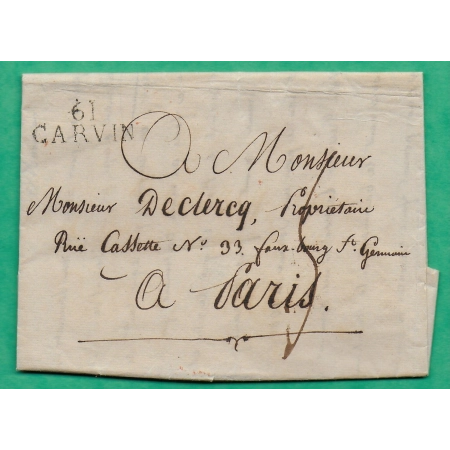 61
CARVIN
A Monsieur
Monsieur Declercq, Propriétaire
Rüe Cassette N.° 33. faux-bourg S.t Germain
A Paris.